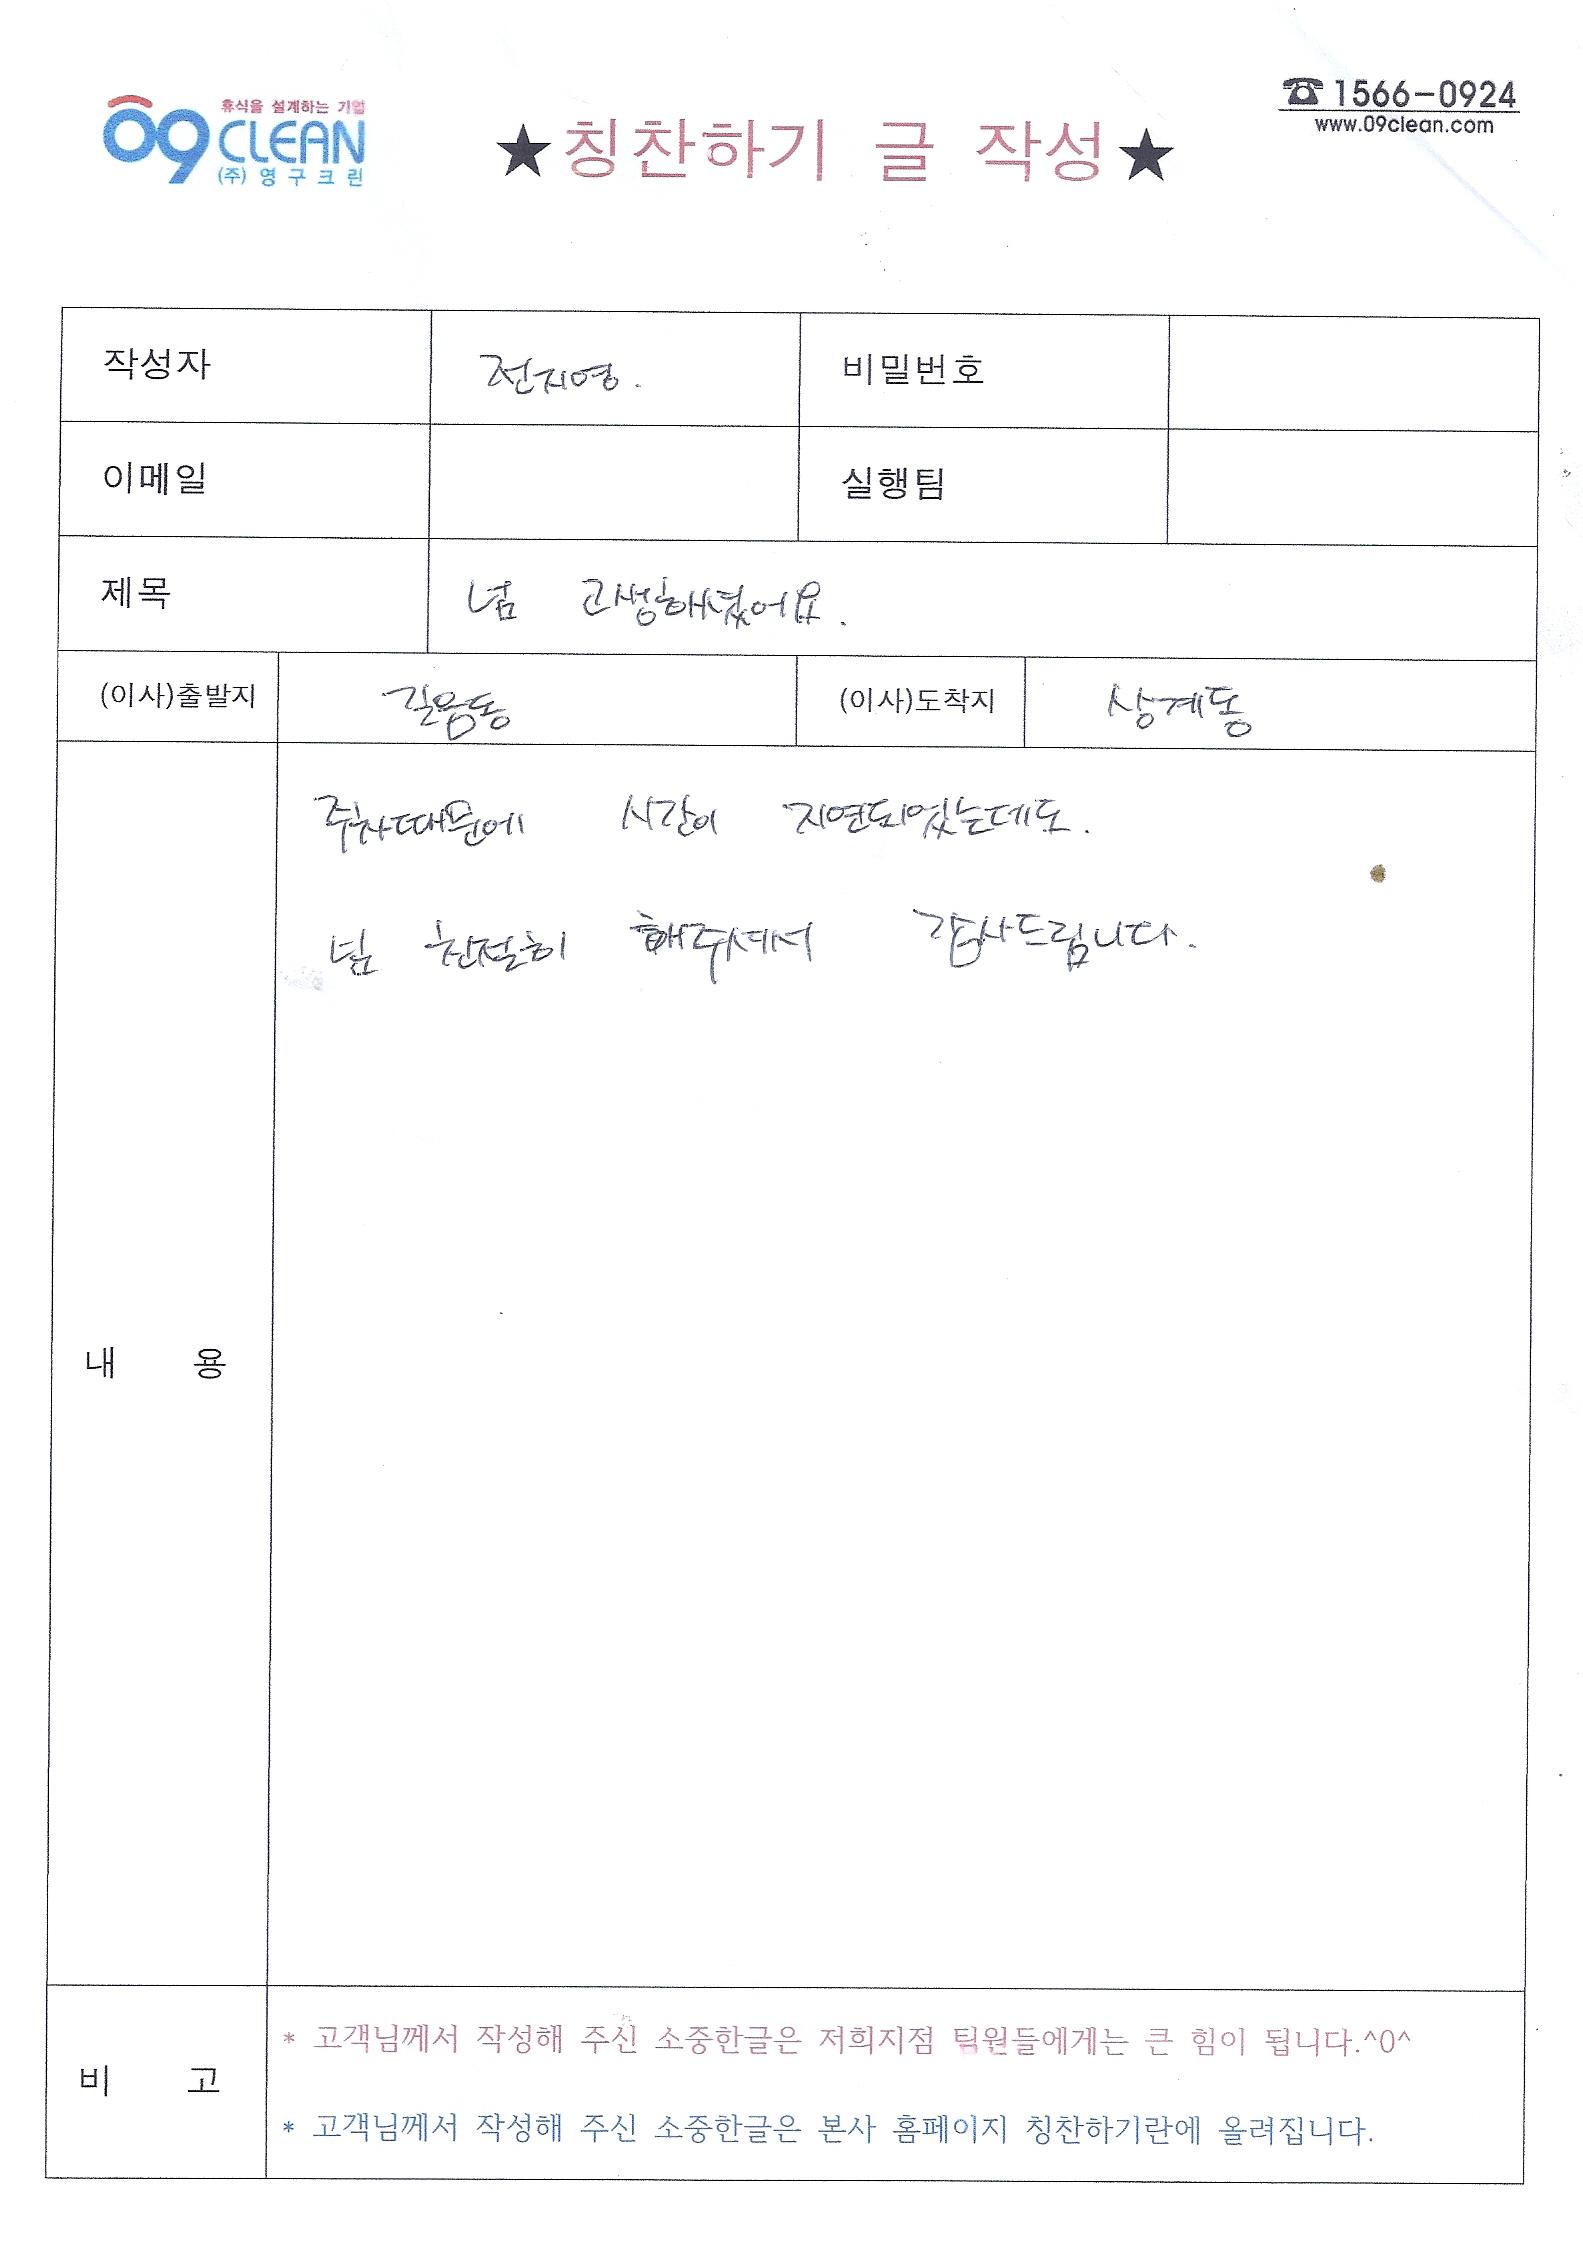 휴식을 설계하는 기업
09 CLEAN
(주)영구크린
☎ 1566-0924
www.09clean.com
★칭찬하기 글 작성★
작성자 전지영. 비밀번호
이메일 실행팀
제목 넘 고생하셨어요.
(이사)출발지 길음동 (이사)도착지 상계동
주차때문에 시간이 지연되었는데도.
넘 친절히 해주셔서 감사드립니다.
내 용
비 고
* 고객님께서 작성해 주신 소중한글은 저희지점 팀원들에게는 큰 힘이 됩니다.^0^
* 고객님께서 작성해 주신 소중한글은 본사 홈페이지 칭찬하기란에 올려집니다.